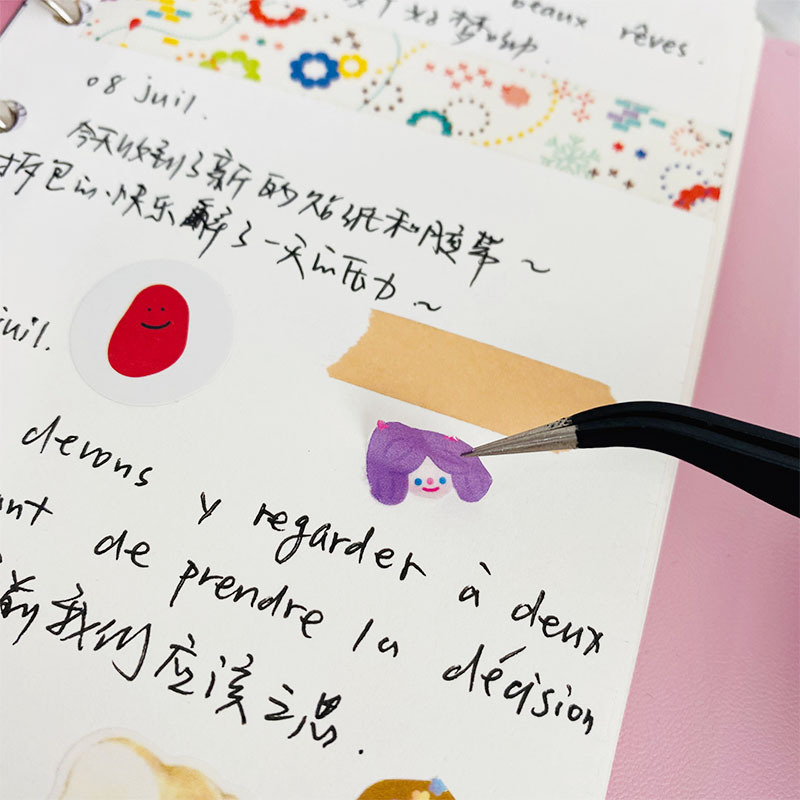 beaux rêves.
08 juil.
今天收到了新的贴纸和胶带~
拆包的快乐解了一天的压力~
juil.
devons y regarder à deux
de prendre la décision
前我们应该三思.